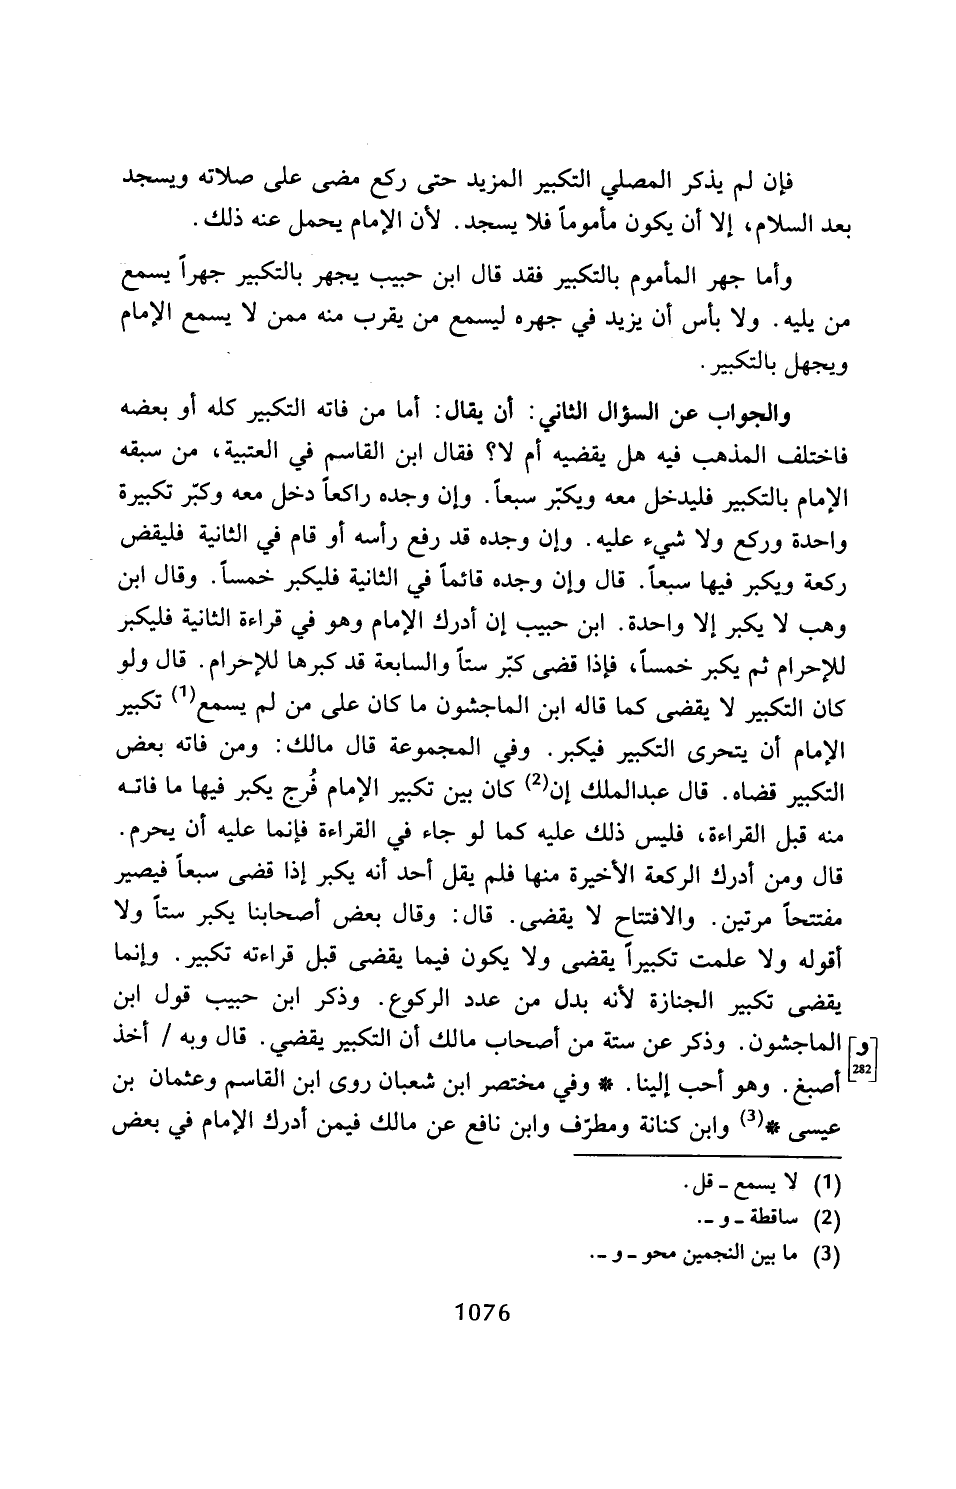 فإن لم يذكر المصلي التكبير المزيد حتى ركع مضى على صلاته ويسجد
بعد السلام، إلا أن يكون مأموماً فلا يسجد. لأن الإمام يحمل عنه ذلك.
وأما جهر المأموم بالتكبير فقد قال ابن حبيب يجهر بالتكبير جهراً يسمع
من يليه. ولا بأس أن يزيد في جهره ليسمع من يقرب منه ممن لا يسمع الإمام
ويجهل بالتكبير.
والجواب عن السؤال الثاني: أن يقال: أما من فاته التكبير كله أو بعضه
فاختلف المذهب فيه هل يقضيه أم لا؟ فقال ابن القاسم في العتبية، من سبقه
الإمام بالتكبير فليدخل معه ويكبّر سبعاً. وإن وجده راكعاً دخل معه وكبّر تكبيرة
واحدة وركع ولا شيء عليه. وإن وجده قد رفع رأسه أو قام في الثانية فليقض
ركعة ويكبر فيها سبعاً. قال وإن وجده قائماً في الثانية فليكبر خمساً. وقال ابن
وهب لا يكبر إلا واحدة. ابن حبيب إن أدرك الإمام وهو في قراءة الثانية فليكبر
للإحرام ثم يكبر خمساً، فإذا قضى كبّر ستاً والسابعة قد كبرها للإحرام. قال ولو
كان التكبير لا يقضى كما قاله ابن الماجشون ما كان على من لم يسمع(1) تكبير
الإمام أن يتحرى التكبير فيكبر. وفي المجموعة قال مالك: ومن فاته بعض
التكبير قضاه. قال عبدالملك إن(2) كان بين تكبير الإمام فُرج يكبر فيها ما فاته
منه قبل القراءة، فليس ذلك عليه كما لو جاء في القراءة فإنما عليه أن يحرم.
قال ومن أدرك الركعة الأخيرة منها فلم يقل أحد أنه يكبر إذا قضى سبعاً فيصير
مفتتحاً مرتين. والافتتاح لا يقضى. قال: وقال بعض أصحابنا يكبر ستاً ولا
أقوله ولا علمت تكبيراً يقضى ولا يكون فيما يقضى قبل قراءته تكبير. وإنما
يقضى تكبير الجنازة لأنه بدل من عدد الركوع. وذكر ابن حبيب قول ابن
الماجشون. وذكر عن ستة من أصحاب مالك أن التكبير يقضي. قال وبه / أخذ
[و 282]
أصبغ. وهو أحب إلينا. * وفي مختصر ابن شعبان روى ابن القاسم وعثمان بن
عيسى *(3) وابن كنانة ومطرّف وابن نافع عن مالك فيمن أدرك الإمام في بعض
(1) لا يسمع - قل.
(2) ساقطة - و -.
(3) ما بين النجمين محو - و -.
1076